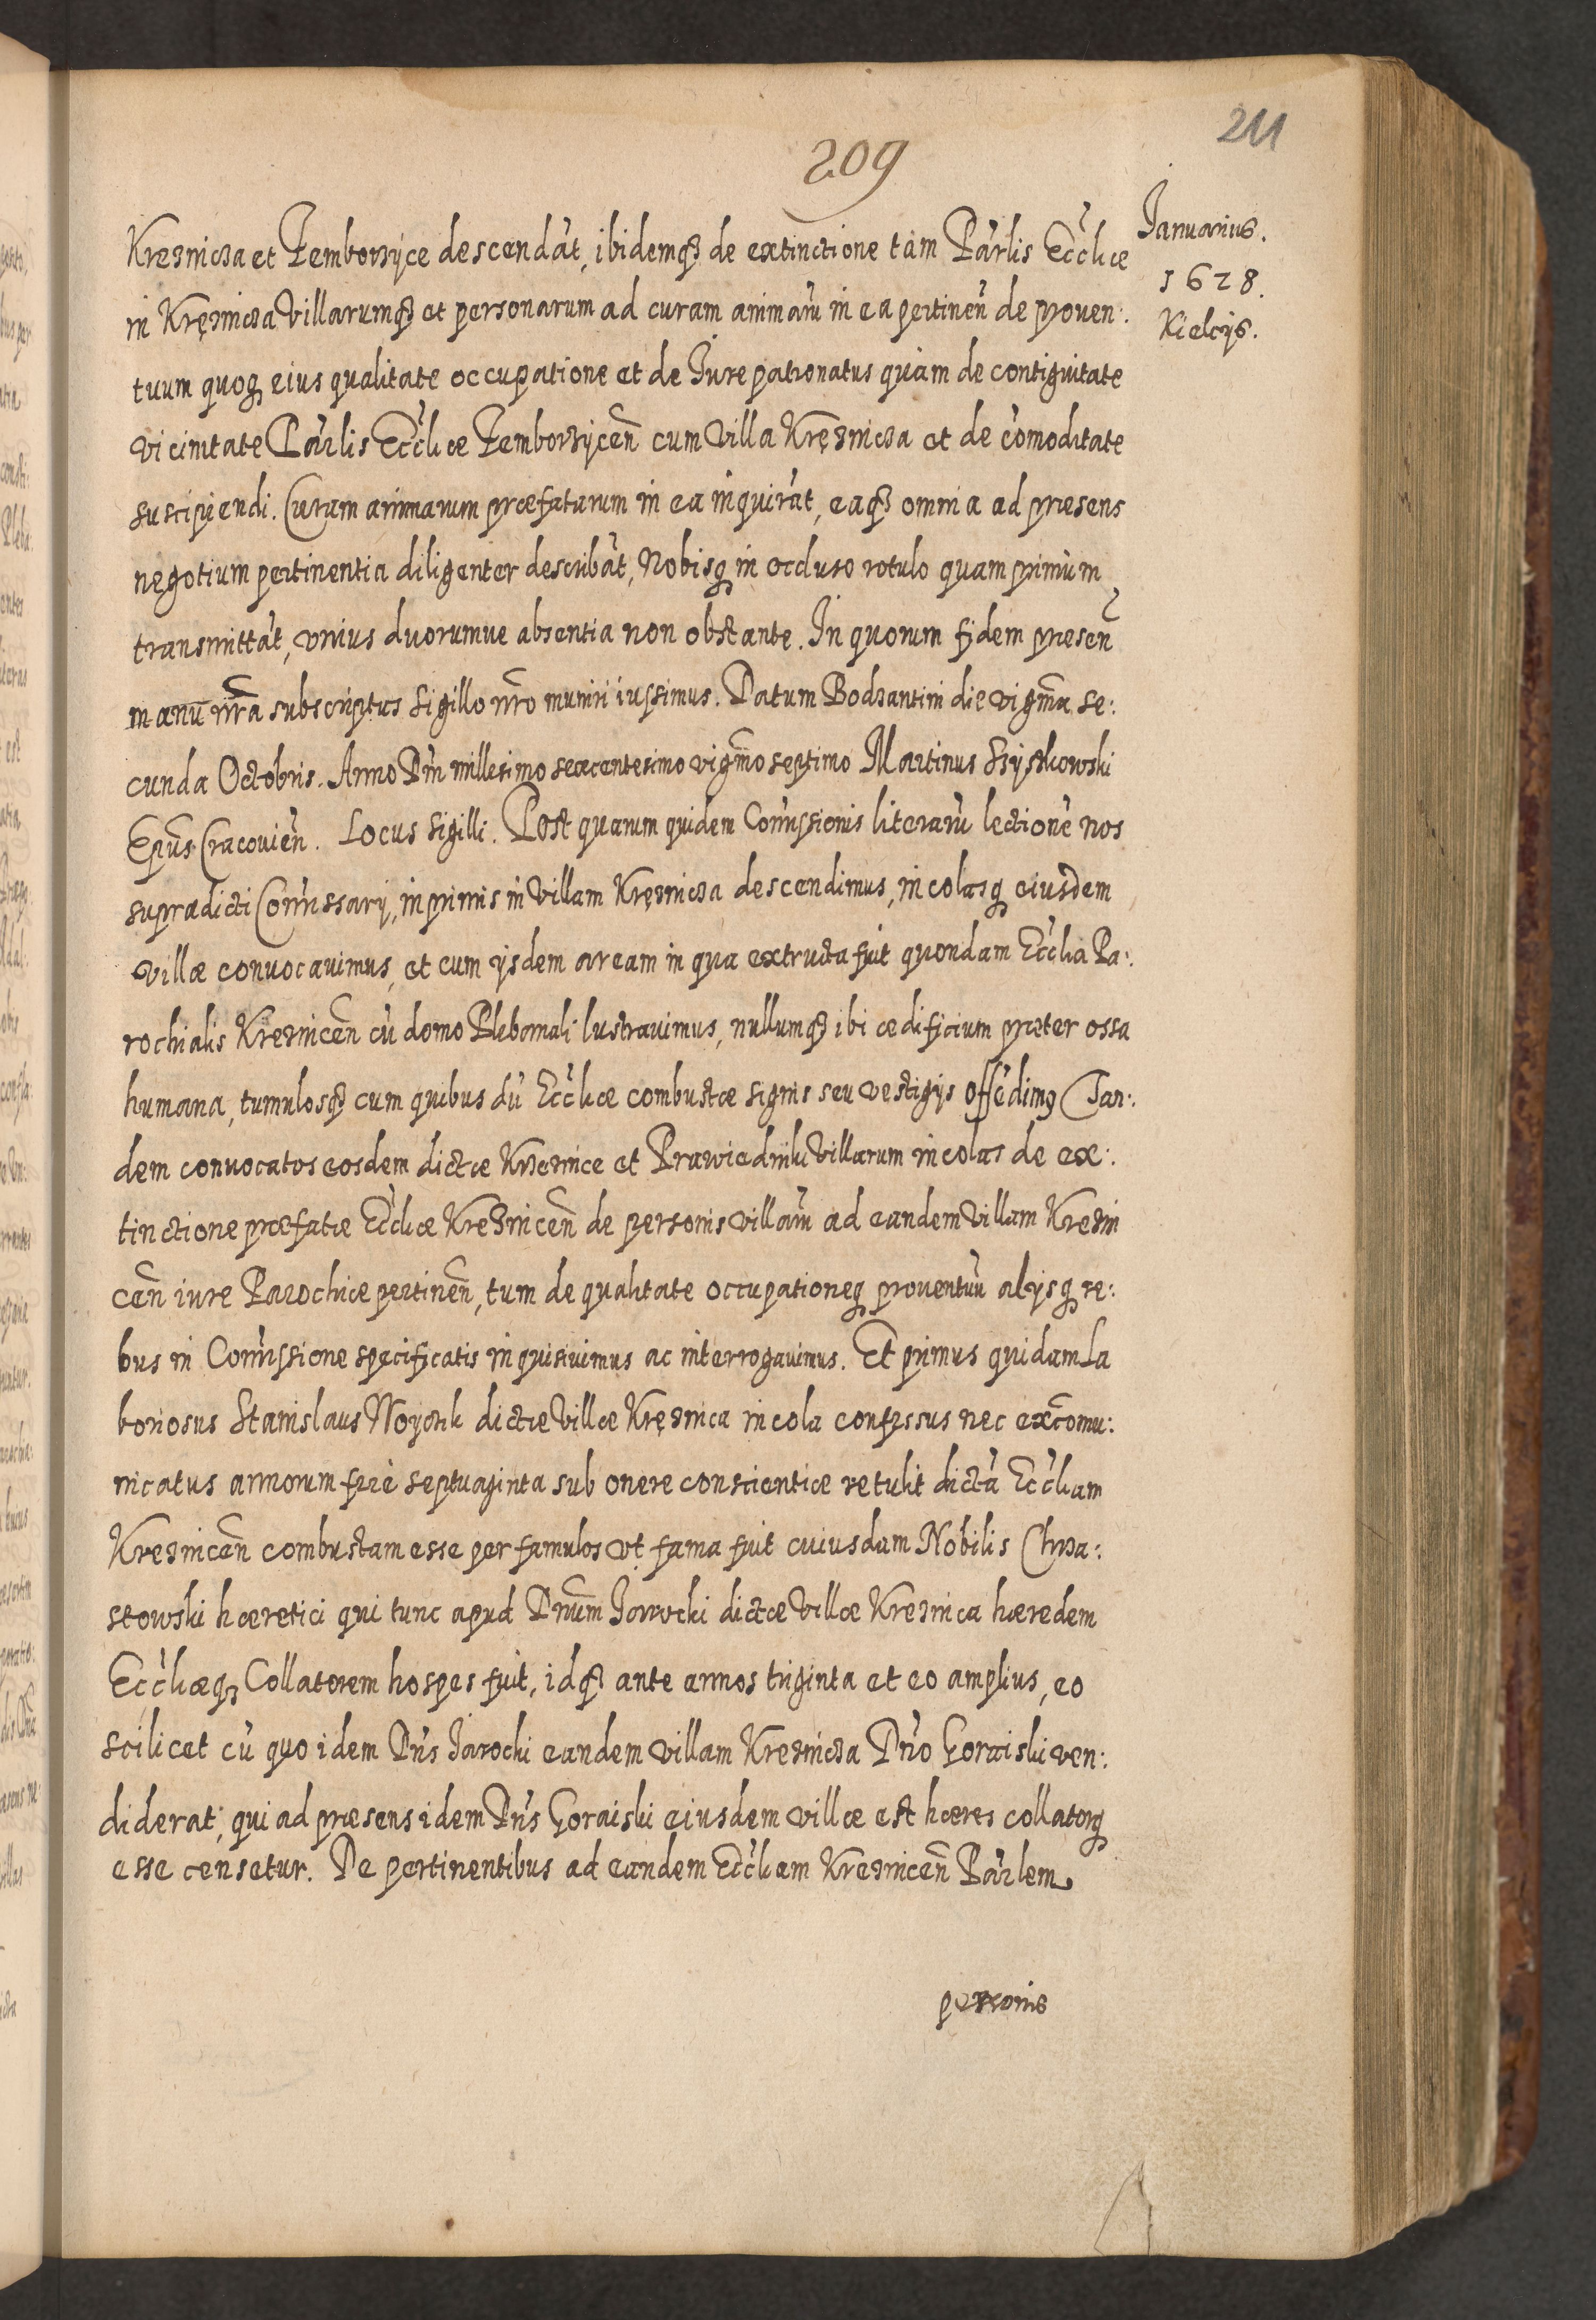 211
209
Januarius.
1628.
Kielcijs.
Kresnicza et Zemborzyce descendāt, ibidemq3 de extinctione tàm Pārlis Ecclicæ
in Kręznicza Villarumq3 et personarum ad curam animarū in ea pertineñ de proven:
tuum quoq3 eius qualitate occupatione et de Jure patronatus quàm de contiguitate
vicinitate Pārlis Eccliæ Zemborzyceñ cum Villa Kręznicza et de cōmoditate
suscipiendi. Curam animarum præfatarum in ea inquirāt, eaq3 omnia ad præsens
negotium pertinentia diligenter describāt, Nobisq3 in occluso rotulo quam primùm
transmittāt, vnius duorumue absentia non obstante. In quorum fidem preseñ
manū nr̄a subscriptas Sigillo nr̄o muniri iussimus. Datum Bodzantini die vigm̄a se:
cunda Octobris. Anno Dñi millesimo sexcentesimo vigm̄o septimo Martinus Szyszkowski
Ep̄us Cracovieñ. Locus Sigilli. Post quarum quidem Com̄issionis literarū lectionē nos
supradicti Com̄issarij, inprimis in Villam Kręznicza descendimus, incolasq3 eiusdem
Villæ convocavimus, et cum ijsdem aream in qua extructa fuit quondam Ecclia Pa:
rochialis Krezniceñ cū domo Plebanali lustravimus, nullumq3 ibi ædificium præter ossa
humana, tumulosq3 cum quibusdū Eccliæ combustæ signis seu vestigijs offēdimꝰ Tan:
dem convocatos eosdem dictæ Kreznice et Prawiedniki Villarum incolas de ex:
tinctione præfatæ Eccliæ Krezniceñ de personis villarū ad eandem Villam Krezni
ceñ iure Parochiæ pertineñ, tum de qualitate occupationeq3 proventuū alijsq3 re:
bus in Com̄issione specificatis inquisivimus ac interrogavimus. Et primus quidam La
boriosus Stanislaus Noyczik dictæ Villæ Kręznica incola confessus nec excōmu:
nicatus annorum ferè septuaginta sub onere conscientiæ retulit dictā Eccliam
Krezniceñ combustam esse per famulos vt fama fuit cuiusdam Nobilis Chrza:
stowski hæretici qui tunc apud Dnūm Jarocki dictæ Villæ Kreznica hæredem
Eccliæq3 Collatorem hospes fuit, idq3 ante annos triginta et eo amplius, eo
scilicet cū quo idem Dñs Jarocki eandem villam Kreznicza Dño Goraiski ven:
diderat, qui ad præsens idem Dñs Goraiski eiusdem villæ est hæres collatorq3
esse censetur. De pertinentibus ad eandem Eccliam Krezniceñ Pārlem
personis